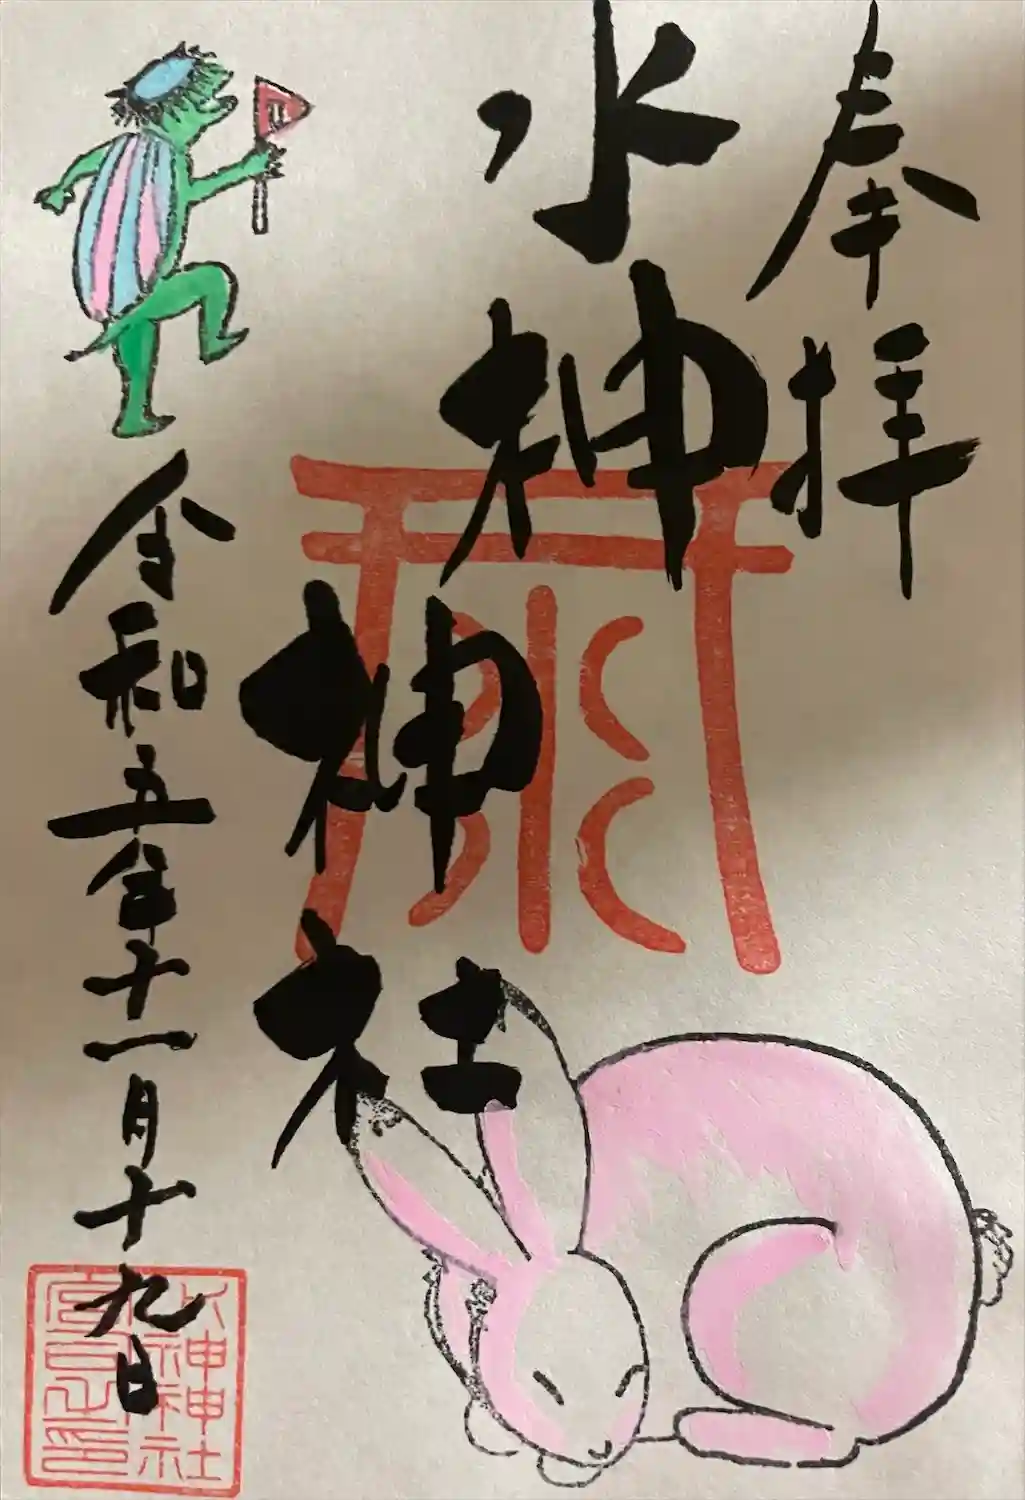 奉拝
水神神社
令和五年十一月十九日
水神神社
宮司之印